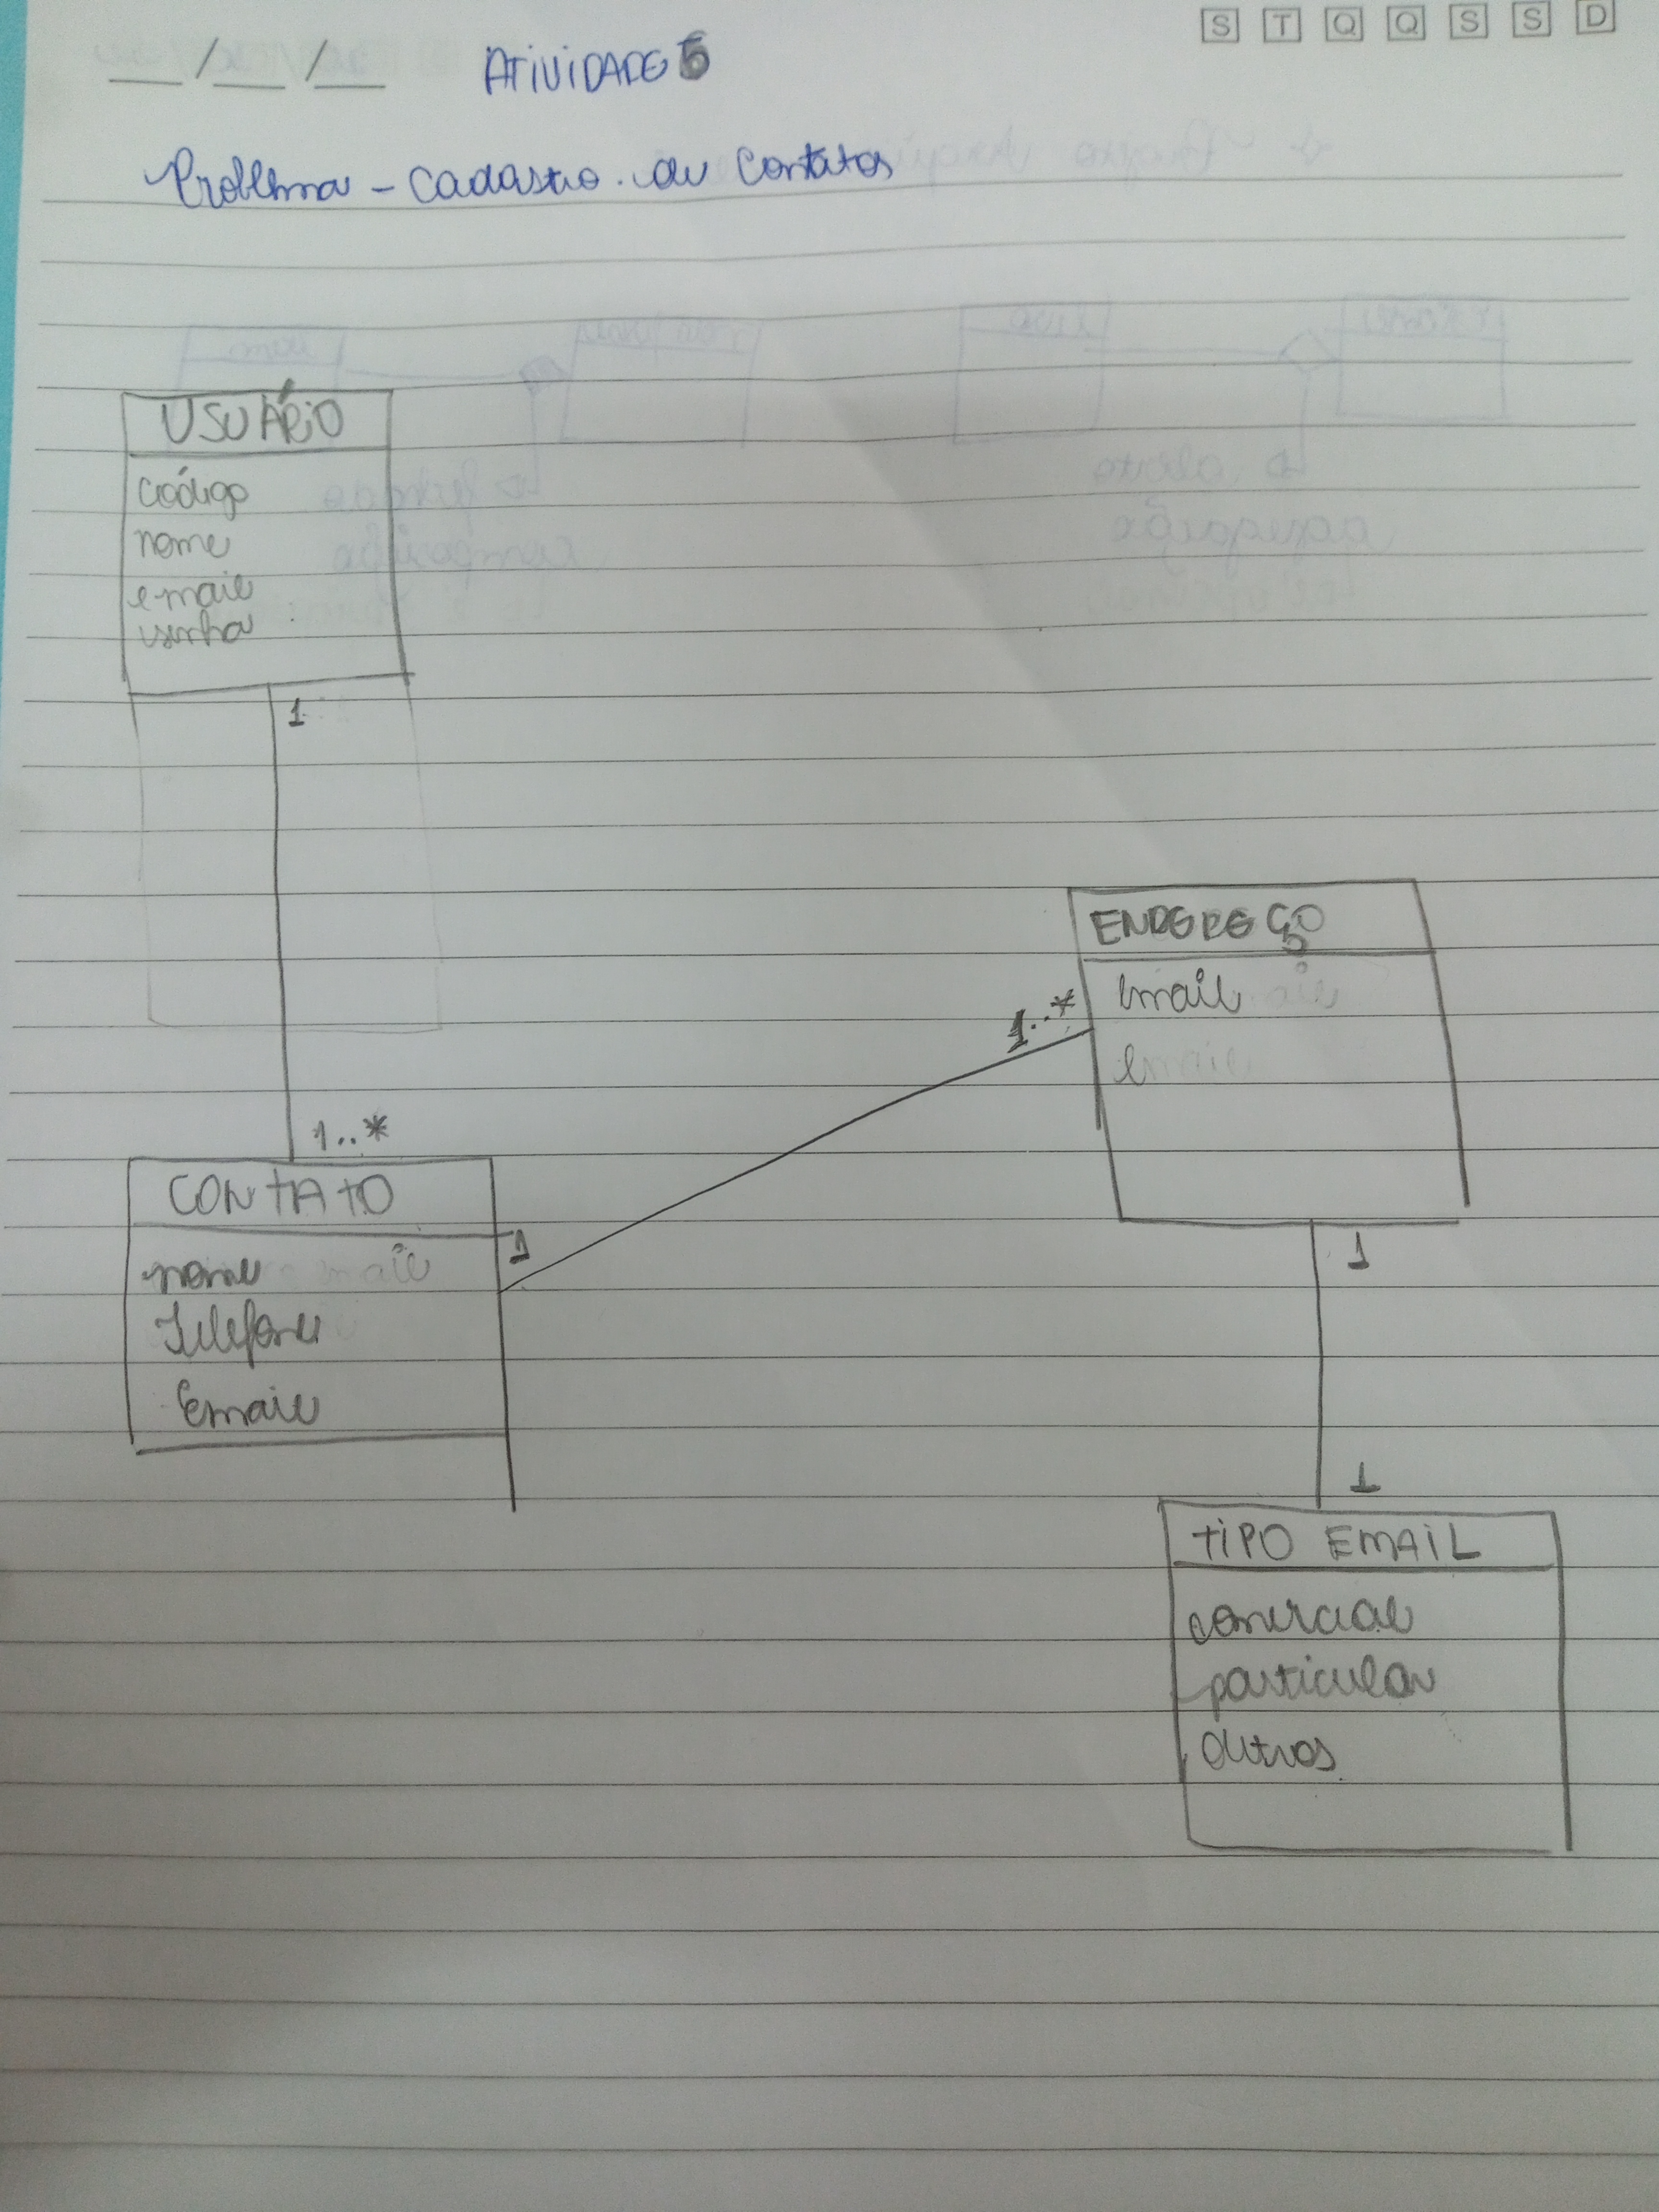 S T Q Q S S D
__/__/__ ATIVIDADE 5
Problema - cadastro de Contatos
USUÁRIO
código
nome
email
senha
1
1..*
CONTATO
nome
Telefone
Email
1
1..*
ENDEREÇO
email
email
1
1
TIPO EMAIL
comercial
particular
outros